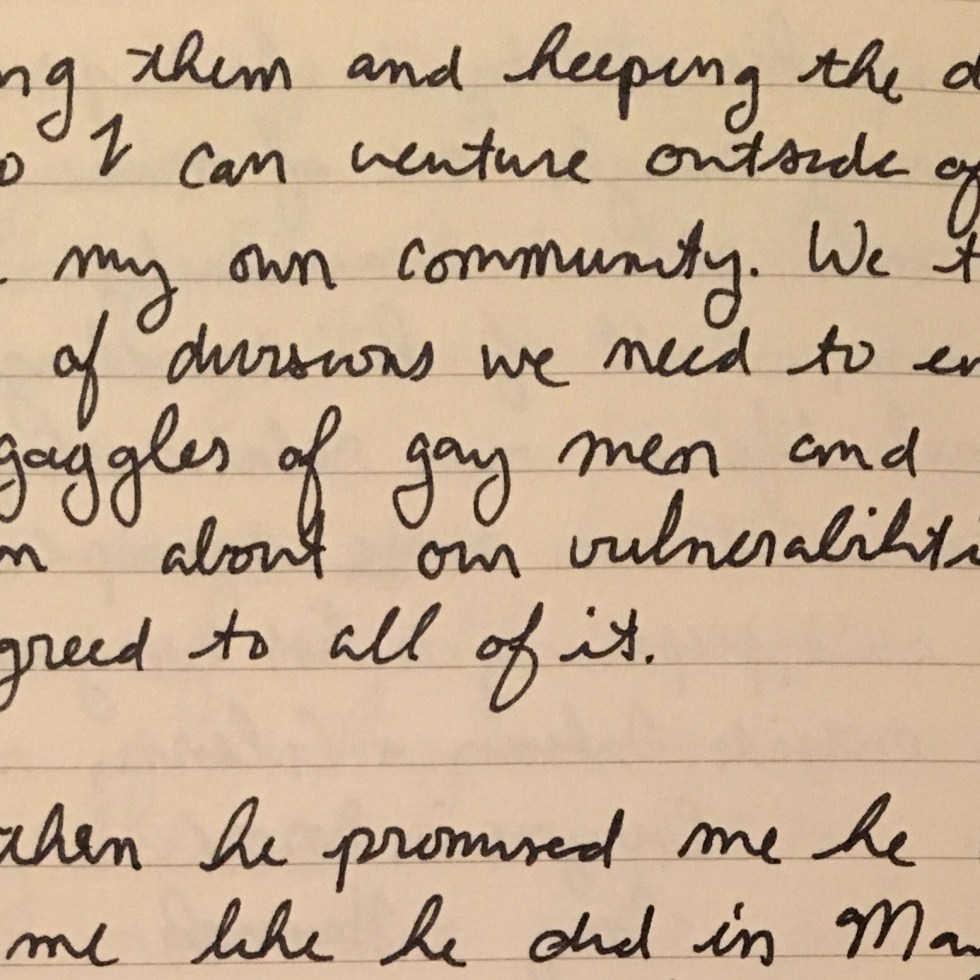 ng them and keeping the d
o I can venture outside of
my own community. We t
of divisions we need to en
gaggles of gay men and
m about our vulnerabiliti
greed to all of it.
then he promised me he
me like he did in Ma